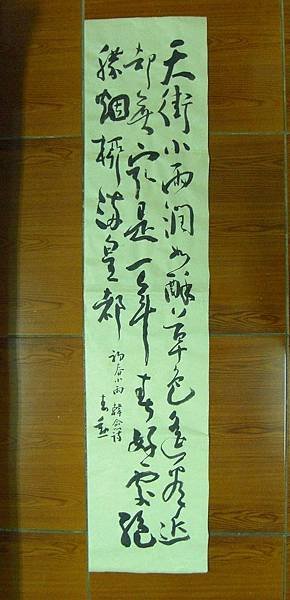 天街小雨潤如酥草色遙看近
却無最是一年春好處絕
勝烟柳滿皇都
初春小雨 韓愈詩